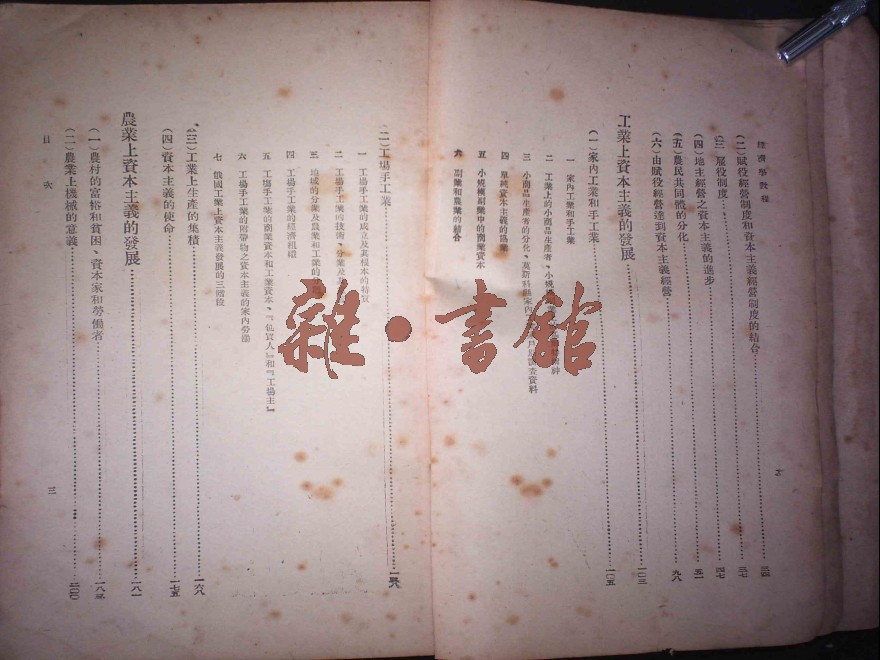 經濟學教程
(二)賦役經營制度和資本主義經營制度的結合
(三)雇役制度 四七
(四)地主經營之資本主義的進步 五一
(五)農民共同體的分化 九八
(六)由賦役經營達到資本主義經營
工業上資本主義的發展 一〇三
(一)家內工業和手工業 一〇五
一 家內工業和手工業
二 工業上的小商品生產者、小規模
三 小商品生產者的分化、莫斯科縣家內 調查資料
四 單純資本主義的協業
五 小規模副業中的商業資本
六 副業和農業的結合
(二)工場手工業
一 工場手工業的成立及其根本的特質
二 工場手工業的技術、分業及其
三 地域的分業及農業和工業的
四 工場手工業的經濟組織
五 工場手工業的商業資本和工業資本、『包買人』和『工場主』
六 工場手工業的附帶物之資本主義的家內勞働
七 俄國工業上資本主義發展的三階段
(三)工業上生產的集積 一六八
(四)資本主義的使命 一七五
農業上資本主義的發展 一八一
(一)農村的富裕和貧困、資本家和勞働者
(二)農業上機械的意義 二〇〇
目次
三
雜•書館